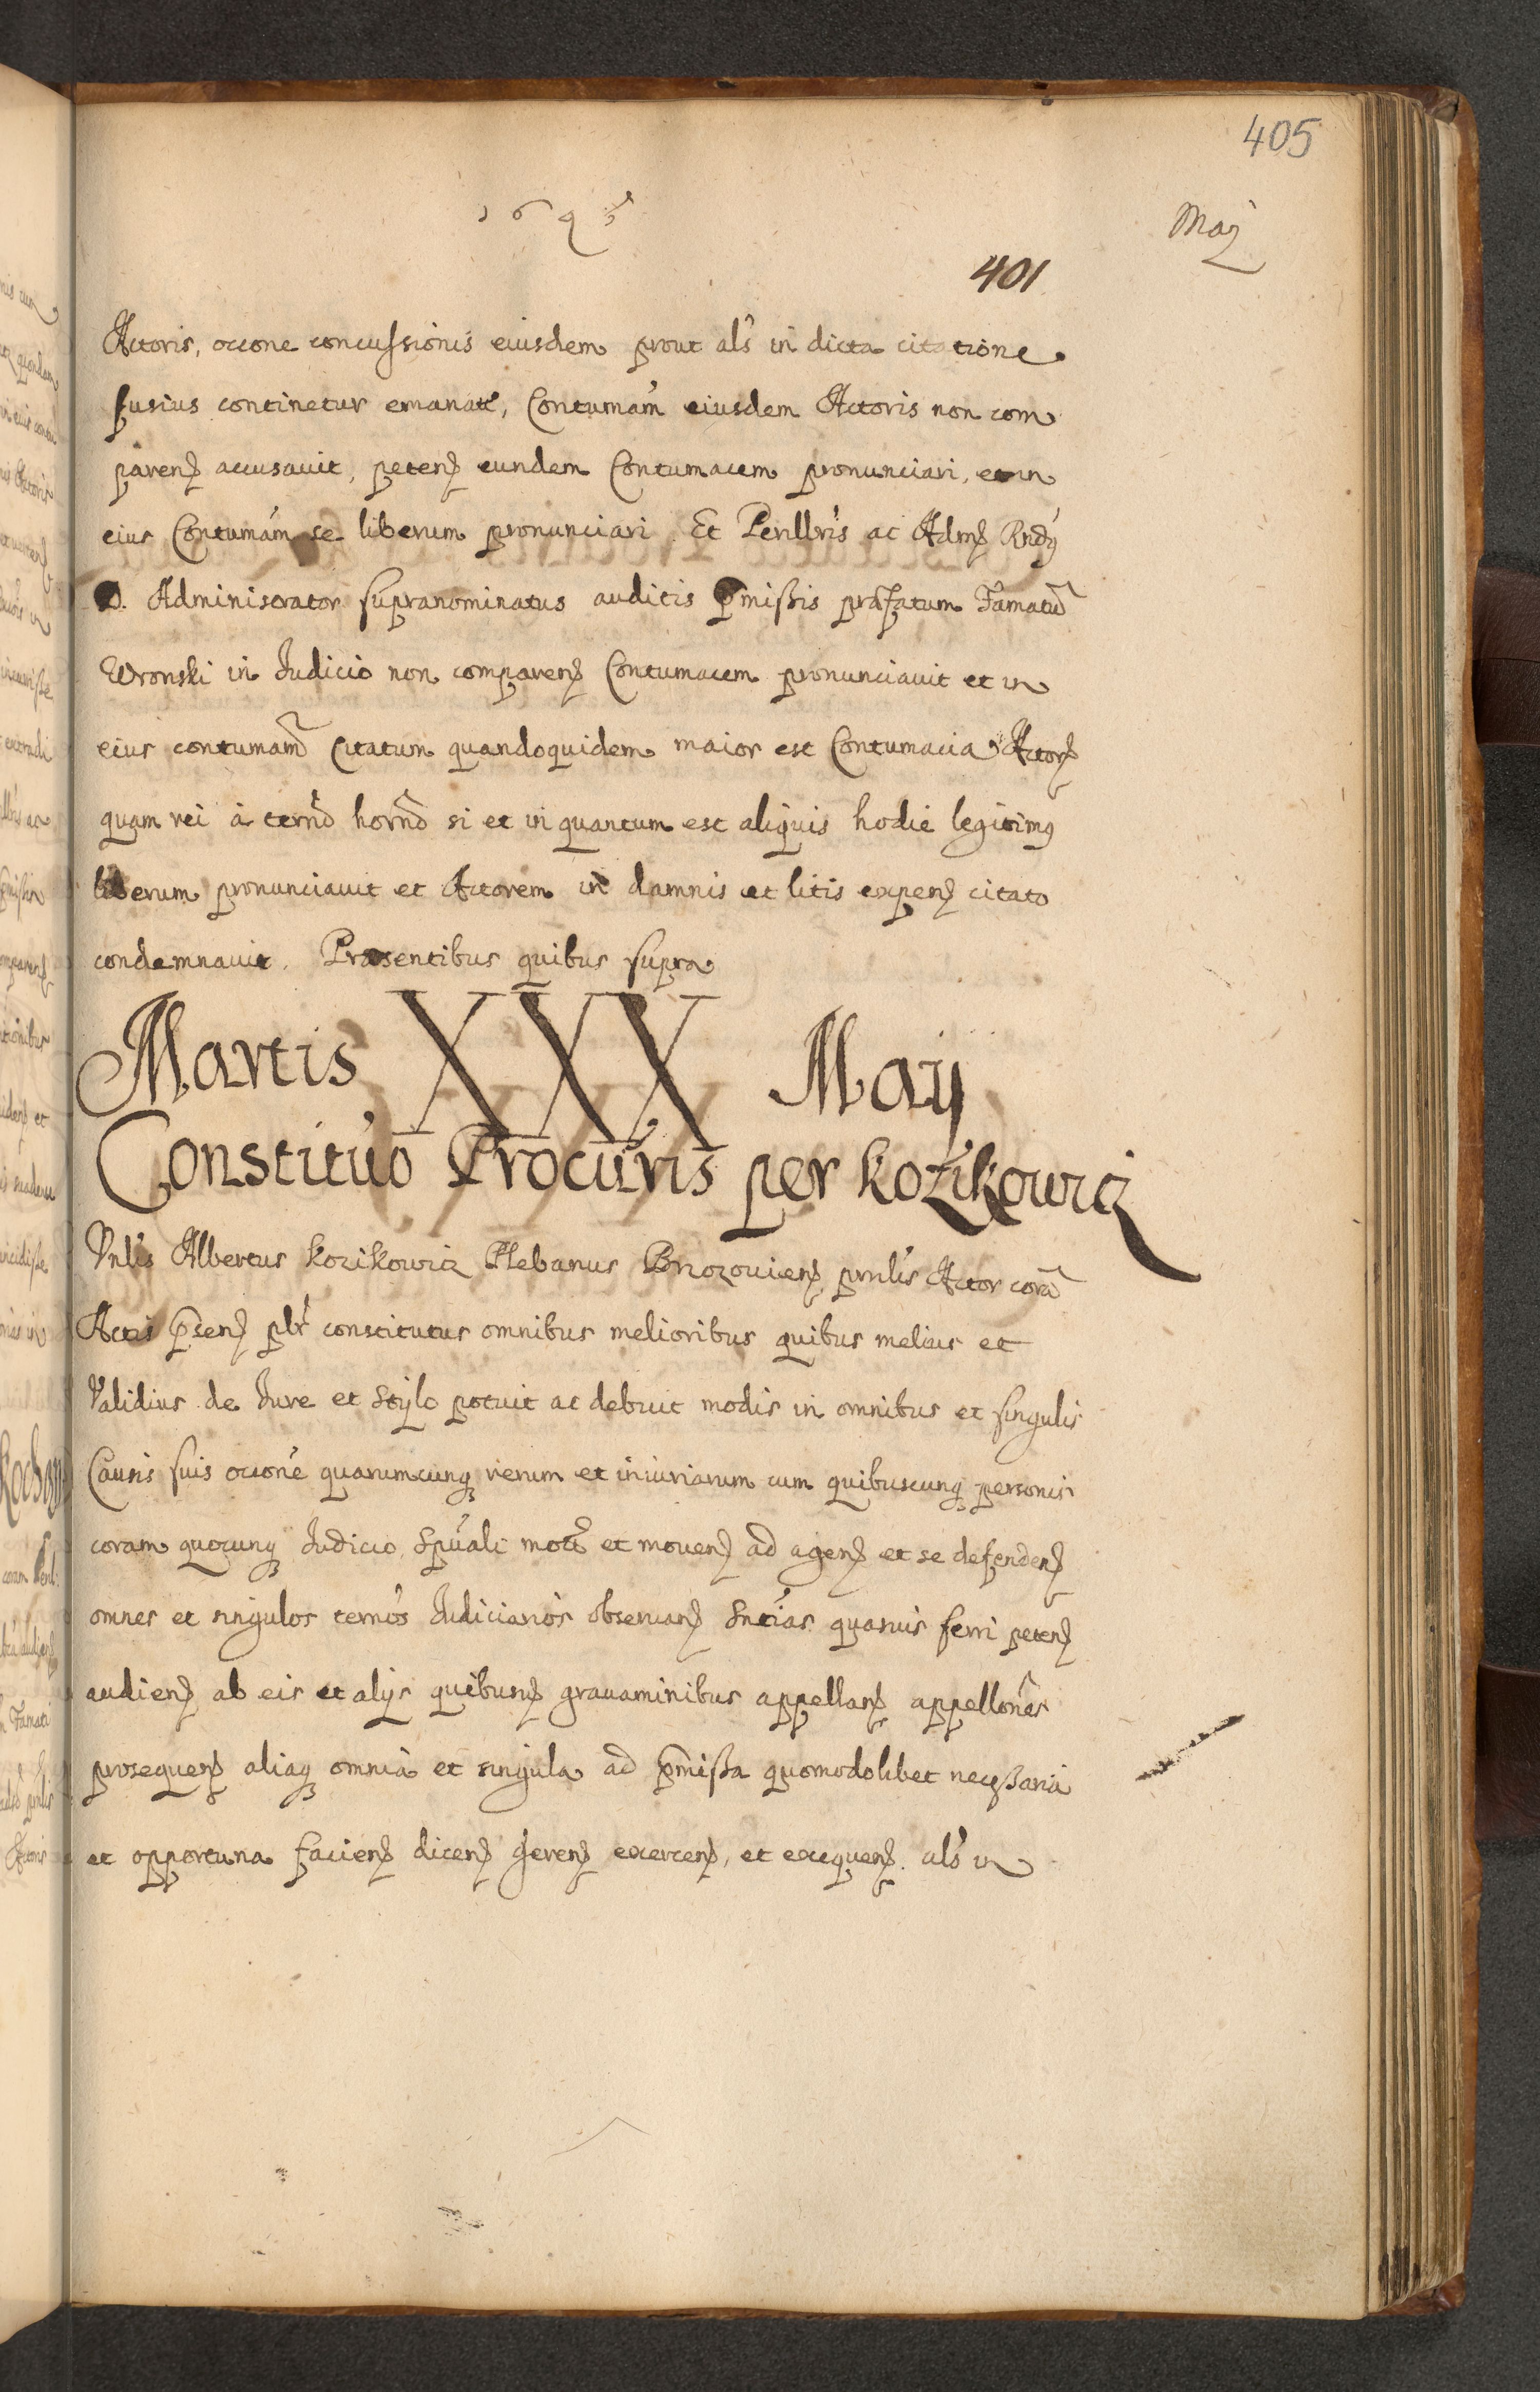 405
Maÿ
401
Actoris, occone concussionis eiusdem prout als in dicta citatione
fusius continetur emanatē, Contumám eiusdem Actoris non com
parenꝭ accusavit, petenꝭ eundem Contumacem pronunciari, et in
eius Contumám se liberum pronunciari Et Perillris ac Admꝭ Rndꝰ
D. Administrator supranominatus auditis pmissis præfatum Famatū
Wronski in Iudicio non comparenꝭ Contumacem pronunciavit et in
eius contumam̄ Citatum quandoquidem maior est Contumacia Actorꝭ
quam rei à termō horno si et in quantum est aliquis hodie legitimꝰ
liberum pronunciavit et Actorem in damnis et litis expenꝭ citato
condemnavit. Præsentibus quibus supra
Martis XXX Maij
Constitúō Procúris per Kozikowicz
Vnlis Albertus Kozikowicz Plebanus Brzozouienꝭ prnlis Actor corā
Actis p̄senꝭ plr constitutus omnibus melioribus quibus melius et
Validius de Iure et Stylo potuit ac debuit modis in omnibus et singulis
Causis suis occoné quarumcunqꝫ rerum et iniuriarum cum quibuscunqꝫ personis
coram quocunqꝫ Iudicio Spúali motꝭ et movenꝭ ad agenꝭ et se defendenꝭ
omnes et singulos ternós Iudiciarios observanꝭ Sntias quasvis ferri petenꝭ
audienꝭ ab eis et alijs quibusvꝭ gravaminibus appellanꝭ appellones
prosequenꝭ aliaqꝫ omnia et singula ad pmissa quomodolibet necessaria
et opportuna facienꝭ dicenꝭ gerenꝭ exercenꝭ, et exequenꝭ als in